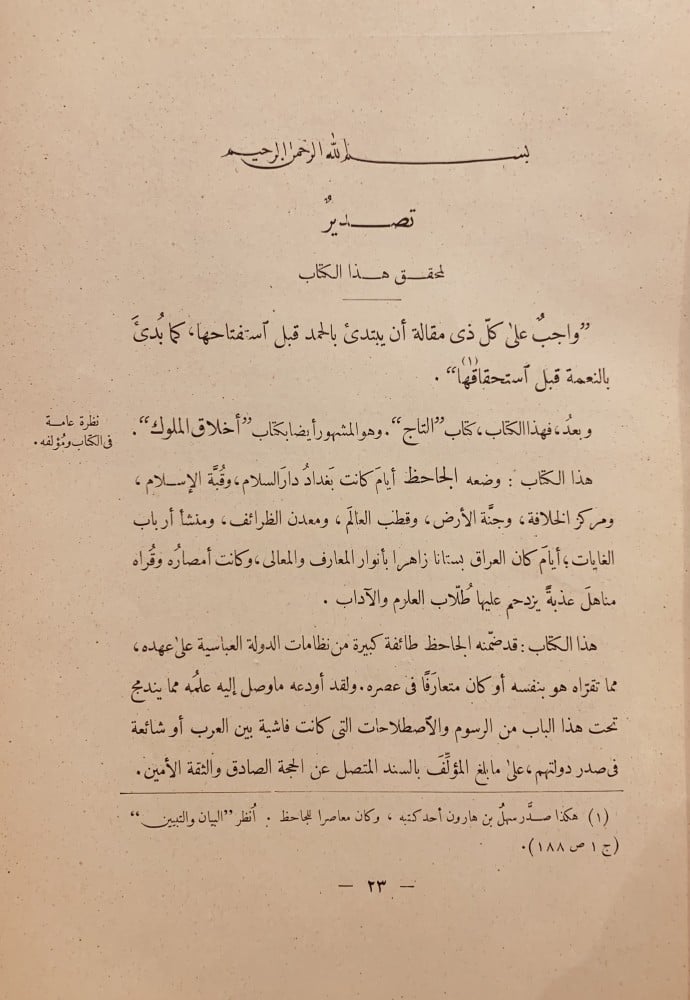 بسم الله الرحمن الرحيم
تصديرٌ
لمحقق هذا الكتاب
”واجبٌ علىٰ كلّ ذى مقالة أن يبتدئ بالحمد قبل ٱستفتاحها، كما بُدئَ
بالنعمة قبل ٱستحقاقها(١)“ .
نظرة عامة
فى الكتاب ومُؤلفه.
وبعدُ، فهذا الكتاب، كتاب ”التاج“. وهو المشهور أيضا بكتاب ”أخلاق الملوك“.
هذا الكتاب : وضعه الجاحظ أيامَ كانت بَغدادُ دارَ السلام، وقُبَّة الإسلام ،
ومركز الخلافة ، وجنَّة الأرض، وقطب العالَم ، ومعدن الظرائف، ومنشأ أرباب
الغايات؛ أيامَ كان العراق بستانا زاهرا بأنوار المعارف والمعالى، وكانت أمصارُه وقُراه
مناهلَ عذبةً يزدحم عليها طُلّاب العلوم والآداب .
هذا الكتاب : قد ضمّنه الجاحظ طائفة كبيرة من نظامات الدولة العباسية علىٰ عهده،
مما تقرّاه هو بنفسه أو كان متعارَفًا فى عصره. ولقد أودعه ماوصل إليه علمُه مما يندمج
تحت هذا الباب من الرسوم والٱصطلاحات التى كانت فاشية بين العرب أو شائعة
فى صدر دولتهم، علىٰ مابلغ المؤلِّفَ بالسند المتصل عن الحجة الصادق والثقة الأمين.
(١) هكذا صدَّر سهلُ بن هارون أحد كتبه ، وكان معاصرا للجاحظ . ٱنظر ”البيان والتبيين“
(ج ١ ص ١٨٨).
— ٢٣ —